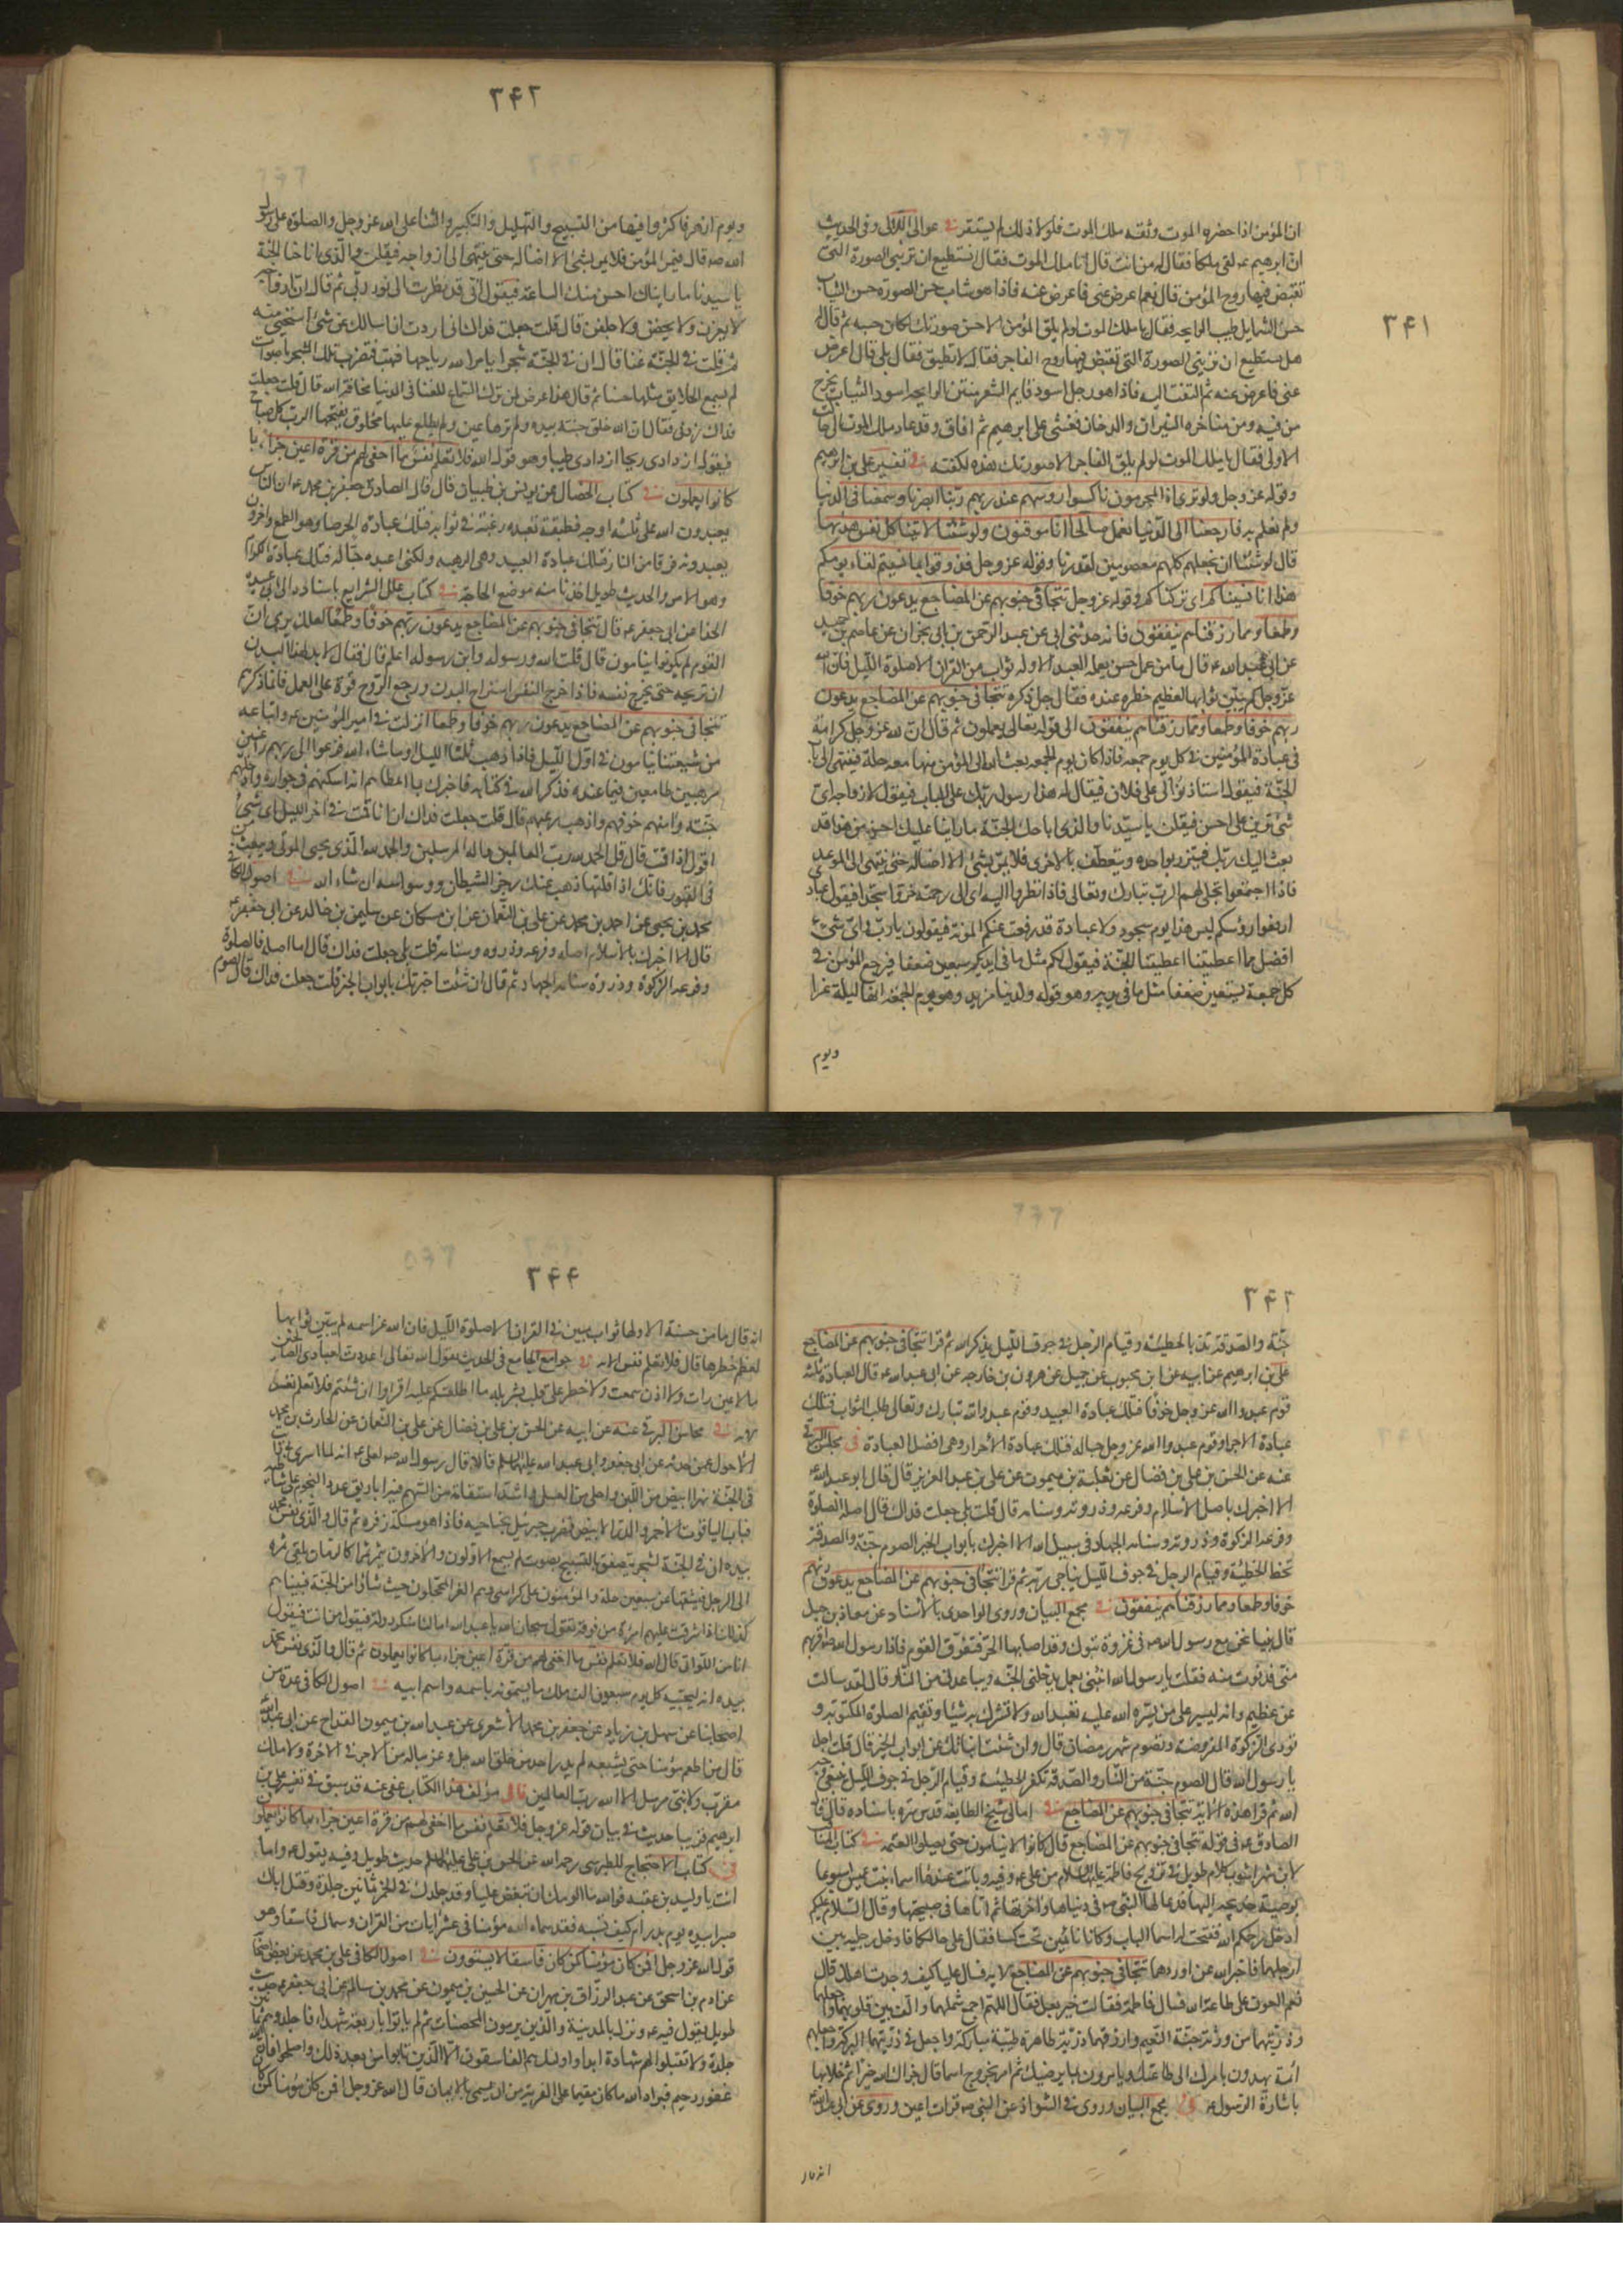 ۳۴۱
ان المؤمن اذا حضره الموت وثقه ملك الموت فلولا ذلك لم يستقر في عوالى اللآلى وفي الحديث
ان ابرهيم ع لقى ملكا فقال له من انت قال انا ملك الموت فقال اتستطيع ان تريني الصورة التي
تقبض فيها روح المؤمن قال نعم اعرض عني فاعرض عنه فاذا هو شاب حسن الصورة حسن الثياب
حسن الشمايل طيب الرايحه فقال يا ملك الموت لو لم يلق المؤمن الا حسن صورتك لكان حسبه ثم قال له
هل تستطيع ان تريني الصورة التي تقبض فيها روح الفاجر فقال لا تطيق فقال بلى قال اعرض
عني فاعرض عنه ثم التفت اليه فاذا هو رجل اسود قايم الشعر منتن الرايحه اسود الثياب يخرج
من فيه ومن مناخره النيران والدخان فغشى على ابرهيم ثم افاق وقد عاد ملك الموت الى حالته
الاولى فقال يا ملك الموت لو لم يلق الفاجر الا صورتك هذه لكفته في تفسير علي بن ابرهيم
وقوله عز وجل ولو ترى اذ المجرمون ناكسوا روسهم عند ربهم ربنا ابصرنا وسمعنا في الدنيا
ولم نعلم به فارجعنا الى الدنيا نعمل صالحا انا موقنون ولو شئنا لاتينا كل نفس هديها
قال لو شئنا ان نجعلهم كلهم معصومين لقدرنا وقوله عز وجل فذوقوا بما نسيتم لقاء يومكم
هذا انا نسيناكم اى تركناكم وقوله عز وجل تتجافى جنوبهم عن المضاجع يدعون ربهم خوفا
وطمعا ومما رزقناهم ينفقون فانه حدثني ابي عن عبد الرحمن بن ابي نجران عن عاصم بن حميد
عن ابي عبد الله ع قال ما من عمل حسن يعمله العبد الا وله ثواب من القران الا صلوة الليل فان الله
عز وجل لم يبين ثوابها لعظيم خطره عنده فقال جل ذكره تتجافى جنوبهم عن المضاجع يدعون
ربهم خوفا وطمعا ومما رزقناهم ينفقون الى قوله تعالى يعملون ثم قال ان لله عز وجل كرامة
في عباده المؤمنين في كل يوم جمعه فاذا كان يوم الجمعه بعث الله الى المؤمن منها معه حلة فينتهى الى باب
الجنة فيقول استاذنوا لي على فلان فيقال له هذا رسول ربك على الباب فيقول لازواجه اى
شئ ترين على احسن فيقلن يا سيدنا والذى اباحك الجنة ما راينا عليك احسن من هذا قد
بعث اليك ربك فيتزر بواحده ويتعطف بالاخرى فلا يمر بشئ الا اضاله حتى ينتهى الى الموعد
فاذا اجتمعوا تجلى لهم الرب تبارك وتعالى فاذا نظروا اليه اى الى رحمته خروا سجدا فيقول عبادى
ارفعوا روسكم ليس هذا يوم سجود ولا عبادة قد رفعت عنكم المؤنة فيقولون يا رب واى شئ
افضل مما اعطيتنا اعطيتنا الجنة فيقول لكم مثل ما في ايديكم سبعين ضعفا فيرجع المؤمن في
كل جمعة بسبعين ضعفا مثل ما في يديه وهو قوله ولدينا مزيد وهو يوم الجمعة انها ليلة غرا
ويوم
۳۴۲
ويوم ازهر فاكثروا فيها من التسبيح والتهليل والتكبير والثنا على الله عز وجل والصلوة على رسول
الله ص قال فيمر المؤمن فلا يمر بشئ الا اضاله حتى ينتهى الى ازواجه فيقلن والذى اباحنا الجنة
يا سيدنا ما رايناك احسن منك الساعة فيقول انى قد نظرت الى نور ربي ثم قال ان ازواجه
لا يغرن ولا يحيضن ولا يصلفن قال قلت جعلت فداك انى اردت ان اسالك عن شئ استحيى منه
ثم قلت في الجنة غنا قال ان في الجنة شجرا يامر الله رياحها فتهب فتضرب تلك الشجر باصوات
لم يسمع الخلايق مثلها حسنا ثم قال هذا عوض لمن ترك السماع للغنا في الدنيا مخافة الله قال قلت جعلت
فداك زدنى فقال ان الله خلق جنته بيده ولم ترها عين ولم يطلع عليها مخلوق يفتحها الرب كل صباح
فيقول ازدادى ريحا ازدادى طيبا وهو قول الله فلا تعلم نفس ما اخفى لهم من قرة اعين جزاء بما
كانوا يعملون في كتاب الخصال عن يونس بن ظبيان قال قال الصادق جعفر بن محمد ع ان الناس
يعبدون الله على ثلثه اوجه فطبقة تعبده رغبة في ثوابه فتلك عبادة الحرصا وهو الطمع واخرون
يعبدونه فرقا من النار فتلك عبادة العبيد وهى الرهبه ولكنى اعبده حبا له فتلك عبادة الكرام
وهو الامن والحديث طويل اخذنا منه موضع الحاجة في كتاب علل الشرايع باسناده الى ابي عبيده
الحذا عن ابي جعفر ع قال تتجافى جنوبهم عن المضاجع يدعون ربهم خوفا وطمعا لعلك ترى ان
القوم لم يكونوا ينامون قال قلت الله ورسوله وابن رسوله اعلم قال فقال لا بد لهذا البدن
ان تريحه حتى يخرج نفسه فاذا خرج النفس استراح البدن ورجع الروح قوة على العمل فانما ذكرهم
تتجافى جنوبهم عن المضاجع يدعون ربهم خوفا وطمعا انزلت في امير المؤمنين ع واتباعه
من شيعتنا ينامون في اول الليل فاذا ذهب ثلثا الليل او ما شاء الله فزعوا الى ربهم راغبين
مرهبين طامعين فيما عنده فذكر الله في كتابه فاخبرك بما اعطاهم انه اسكنهم في جواره وادخلهم
جنته وامنهم خوفهم واذهب رعبهم قال قلت جعلت فداك ان انا قمت في اخر الليل اى شئ
اقول اذا قمت قال قل الحمد لله رب العالمين واله المرسلين والحمد لله الذى يحيى الموتى ويبعث من
في القبور فانك اذا قلتها ذهب عنك رجز الشيطان ووسواسه ان شاء الله في اصول الكافى
محمد بن يحيى عن احمد بن محمد عن على بن النعمان عن ابن مسكان عن سليمن بن خالد عن ابي جعفر ع
قال الا اخبرك بالاسلام اصله وفرعه وذروه وسنامه قلت بلى جعلت فداك قال اما اصله فالصلوة
وفرعه الزكوة وذروه سنامه الجهاد ثم قال ان شئت اخبرتك بابواب الخير قلت جعلت فداك قال الصوم
۳۴۳
جنة والصدقه تذهب بالخطيئه وقيام الرجل في جوف الليل يذكر الله ثم قرا تتجافى جنوبهم عن المضاجع
على بن ابرهيم عن ابيه عن ابن محبوب عن جميل عن هرون بن خارجه عن ابي عبد الله ع قال العبادة ثلثه
قوم عبدوا الله عز وجل خوفا فتلك عبادة العبيد وقوم عبدوا الله تبارك وتعالى طلب الثواب فتلك
عبادة الاجرا وقوم عبدوا الله عز وجل حبا له فتلك عبادة الاحرار وهى افضل العبادة في محاسن البرقى
عنه عن الحسن بن على بن فضال عن ثعلبة بن ميمون عن على بن عبد العزيز قال قال ابو عبد الله ع
الا اخبرك باصل الاسلام وفرعه وذروته وسنامه قال قلت بلى جعلت فداك قال اصله الصلوة
وفرعه الزكوة وذروته وسنامه الجهاد في سبيل الله الا اخبرك بابواب الخير الصوم جنة والصدقة
تحط الخطيئة وقيام الرجل في جوف الليل يناجى ربه ثم قرا تتجافى جنوبهم عن المضاجع يدعون ربهم
خوفا وطمعا ومما رزقناهم ينفقون في مجمع البيان وروى الواحدى بالاسناد عن معاذ بن جبل
قال بينا نحن مع رسول الله ص في غزوة تبوك وقد اصابنا الحر فتفرق القوم فاذا رسول الله ص اقربهم
منى فدنوت منه فقلت يا رسول الله انبئنى بعمل يدخلنى الجنة ويباعدنى من النار قال لقد سالت
عن عظيم وانه ليسير على من يسره الله عليه تعبد الله ولا تشرك به شيئا وتقيم الصلوة المكتوبة و
تودى الزكوة المفروضه وتصوم شهر رمضان قال وان شئت انباتك عن ابواب الخير قال قلت اجل
يا رسول الله قال الصوم جنة من النار والصدقة تكفر الخطيئه وقيام الرجل في جوف الليل يبتغى وجه
الله ثم قرا هذه الاية تتجافى جنوبهم عن المضاجع في امالى شيخ الطايفه قدس سره باسناده قال قال
الصادق ع في قوله تتجافى جنوبهم عن المضاجع قال كانوا لا ينامون حتى يصلوا العتمه في كتاب المناقب
لابن شهراشوب كلام طويل في تزويج فاطمة عليها السلام من على ع وفيه وباتت عندها اسما بنت عميس اسبوعا
بوصية خديجه اليها فدعا لها النبى ص في دنياها واخرتها ثم اتاها في صبيحتها وقال السلام عليكم
ادخل رحمكم الله ففتحت له اسما الباب وكانا نائمين تحت كسا فقال على حالكما فادخل رجليه بين
ارجلهما فاخبر الله عن اورادهما تتجافى جنوبهم عن المضاجع الاية فسال عليا كيف وجدت اهلك قال
نعم العون على طاعة الله وسال فاطمه فقالت خير بعل فقال اللهم اجمع شملهما والف بين قلوبهما واجعلهما
وذريتهما من ورثة جنة النعيم وارزقهما ذرية طاهرة طيبة مباركة واجعل في ذريتهما البركة واجعلهم
ائمة يهدون بامرك الى طاعتك ويامرون بما يرضيك ثم امر بخروج اسما قال جزاك الله خيرا ثم خلا بها
باشارة الرسول ص في مجمع البيان وروى في الشواذ عن النبى ص قرات اعين وروى عن ابي عبد الله ع
انه قال
۳۴۴
انه قال ما من حسنة الا ولها ثواب مبين في القران الا صلوة الليل فان الله عز اسمه لم يبين ثوابها
لعظم خطرها قال فلا تعلم نفس الاية في جوامع الجامع في الحديث يقول الله تعالى اعددت لعبادى الصالحين
ما لا عين رات ولا اذن سمعت ولا خطر على قلب بشر بله ما اطلعتكم عليه اقروا ان شئتم فلا تعلم نفس
الاية في محاسن البرقى عنه عن ابيه عن الحسن بن على بن فضال عن على بن النعمان عن الحارث بن محمد
الاحول عمن حدثه عن ابي جعفر وابي عبد الله عليهما السلم قالا قال رسول الله ص لعلى ع انه لما اسرى بى رايت
في الجنة نهرا ابيض من اللبن واحلى من العسل واشد استقامة من السهم فيه اباريق عدد النجوم على شاطئه
قباب الياقوت الاحمر والدر الابيض فضرب جبرئيل بجناحيه فاذا هو مسكة ذفره ثم قال والذى نفس محمد
بيده ان في الجنة لشجرة يصفق بالتسبيح بصوت لم يسمع الاولون والاخرون يثمر ثمرا كالرمان يلقى ثمره
الى الرجل فيشقها عن سبعين حلة والمؤمنون على كراسى وهم الغر المحجلون حيث شاؤا من الجنة فبيناهم
كذلك اذ اشرقت عليهم امرءة من فوقه تقول سبحان الله يا عبد الله اما لنا منك دولة فيقول من انت فيقول
انا من اللواتى قال الله فلا تعلم نفس ما اخفى لهم من قرة اعين جزاء بما كانوا يعملون ثم قال والذى نفس محمد
بيده انه ليجيئه كل يوم سبعون الف ملك ما يسمونه باسمه واسم ابيه في اصول الكافى عدة من
اصحابنا عن سهل بن زياد عن جعفر بن محمد الاشعرى عن عبد الله بن ميمون القداح عن ابي عبد الله
قال من اطعم مؤمنا حتى يشبعه لم يدر احد من خلق الله جل وعز ماله من الاجر في الاخرة لا ملك
مقرب ولا نبى مرسل الا الله رب العالمين قال مؤلف هذا الكتاب عفى عنه قد سبق في تفسير على بن
ابرهيم قريبا حديث في بيان قوله عز وجل فلا تعلم نفس ما اخفى لهم من قرة اعين جزاء بما كانوا يعملون
في كتاب الاحتجاج للطبرسى رحمه الله عن الحسن بن على عليهما السلم حديث طويل وفيه يقول ع واما
انت يا وليد بن عقبه فوالله ما الومك ان تبغض عليا وقد جلدك في الخمر ثمانين جلدة وقتل اباك
صبرا بيده يوم بدر ام كيف تسبه فقد سماه الله مؤمنا في عشر ايات من القران وسماك فاسقا وهو
قول الله عز وجل افمن كان مؤمنا كمن كان فاسقا لا يستوون في اصول الكافى على بن محمد عن بعض اصحابه
عن ادم بن اسحق عن عبد الرزاق بن مهران عن الحسين بن ميمون عن محمد بن سالم عن ابي جعفر ع حديث
طويل يقول فيه ع ونزل بالمدينة والذين يرمون المحصنات ثم لم ياتوا باربعة شهداء فاجلدوهم ثمانين
جلدة ولا تقبلوا لهم شهادة ابدا واولئك هم الفاسقون الا الذين تابوا من بعد ذلك واصلحوا فان الله
غفور رحيم فبراه الله ما كان مقيما على الفرية من ان يسمى بالايمان قال الله عز وجل افمن كان مؤمنا كمن كان